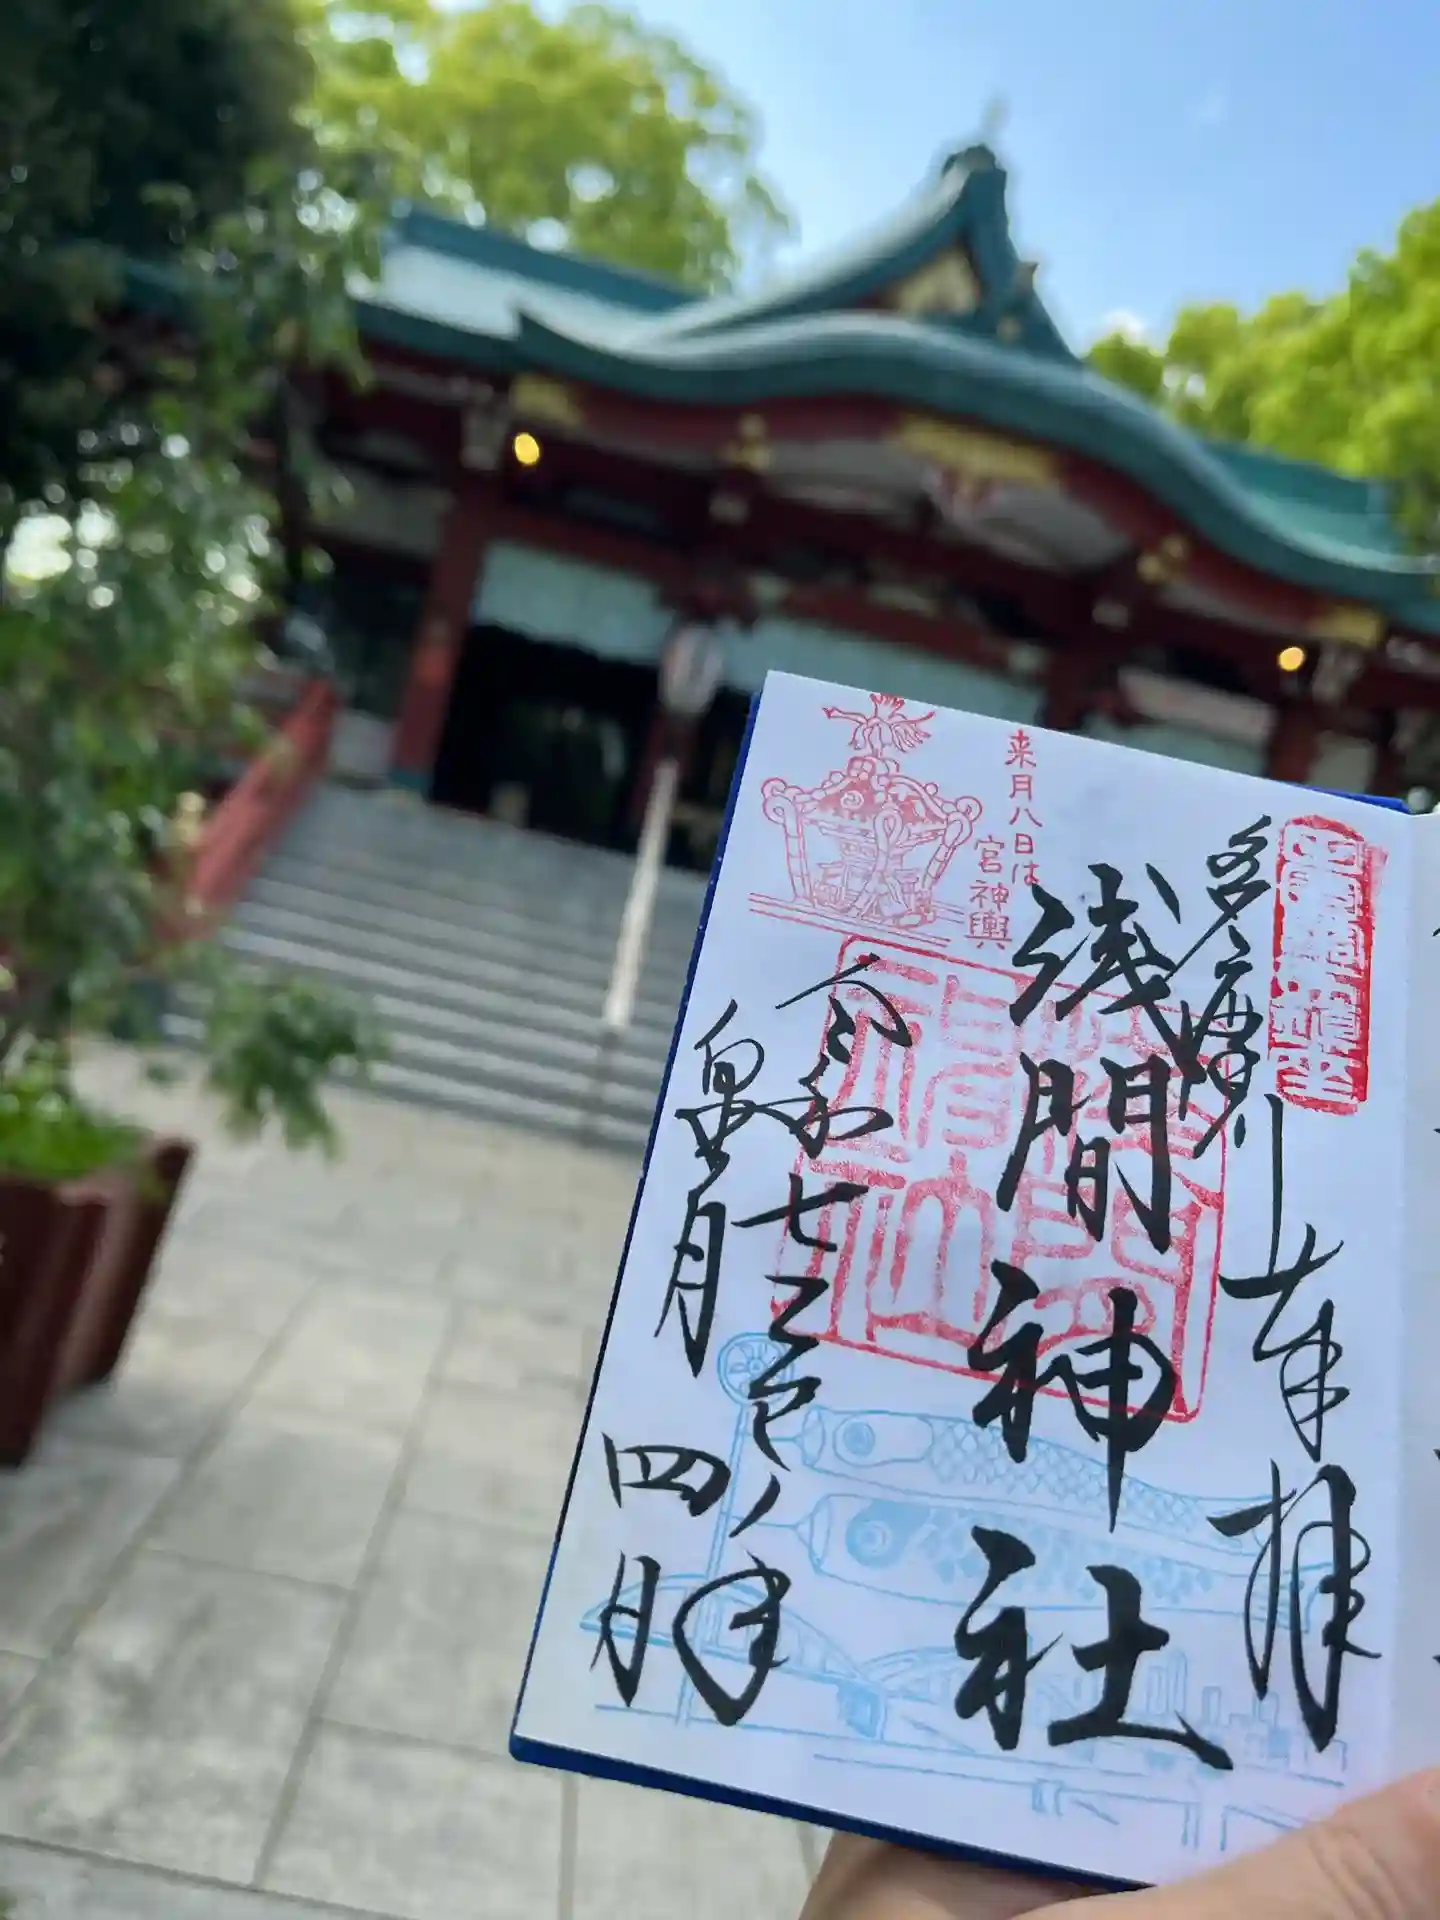 多摩川
奉拝
浅間神社
来月八日は
宮神輿
令和七乙巳ノ年
皐月四日